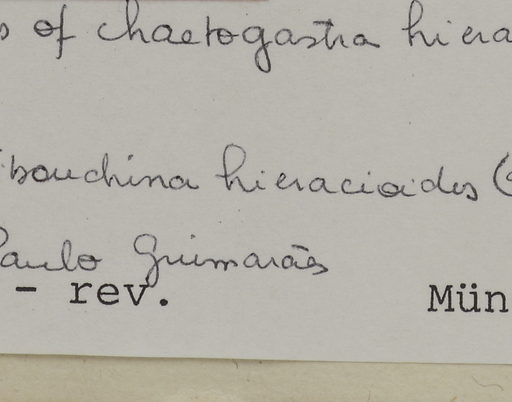 s of chaetogastra hiera
ibouchina hieracioides (
Paulo Guimarães
- rev. Mün